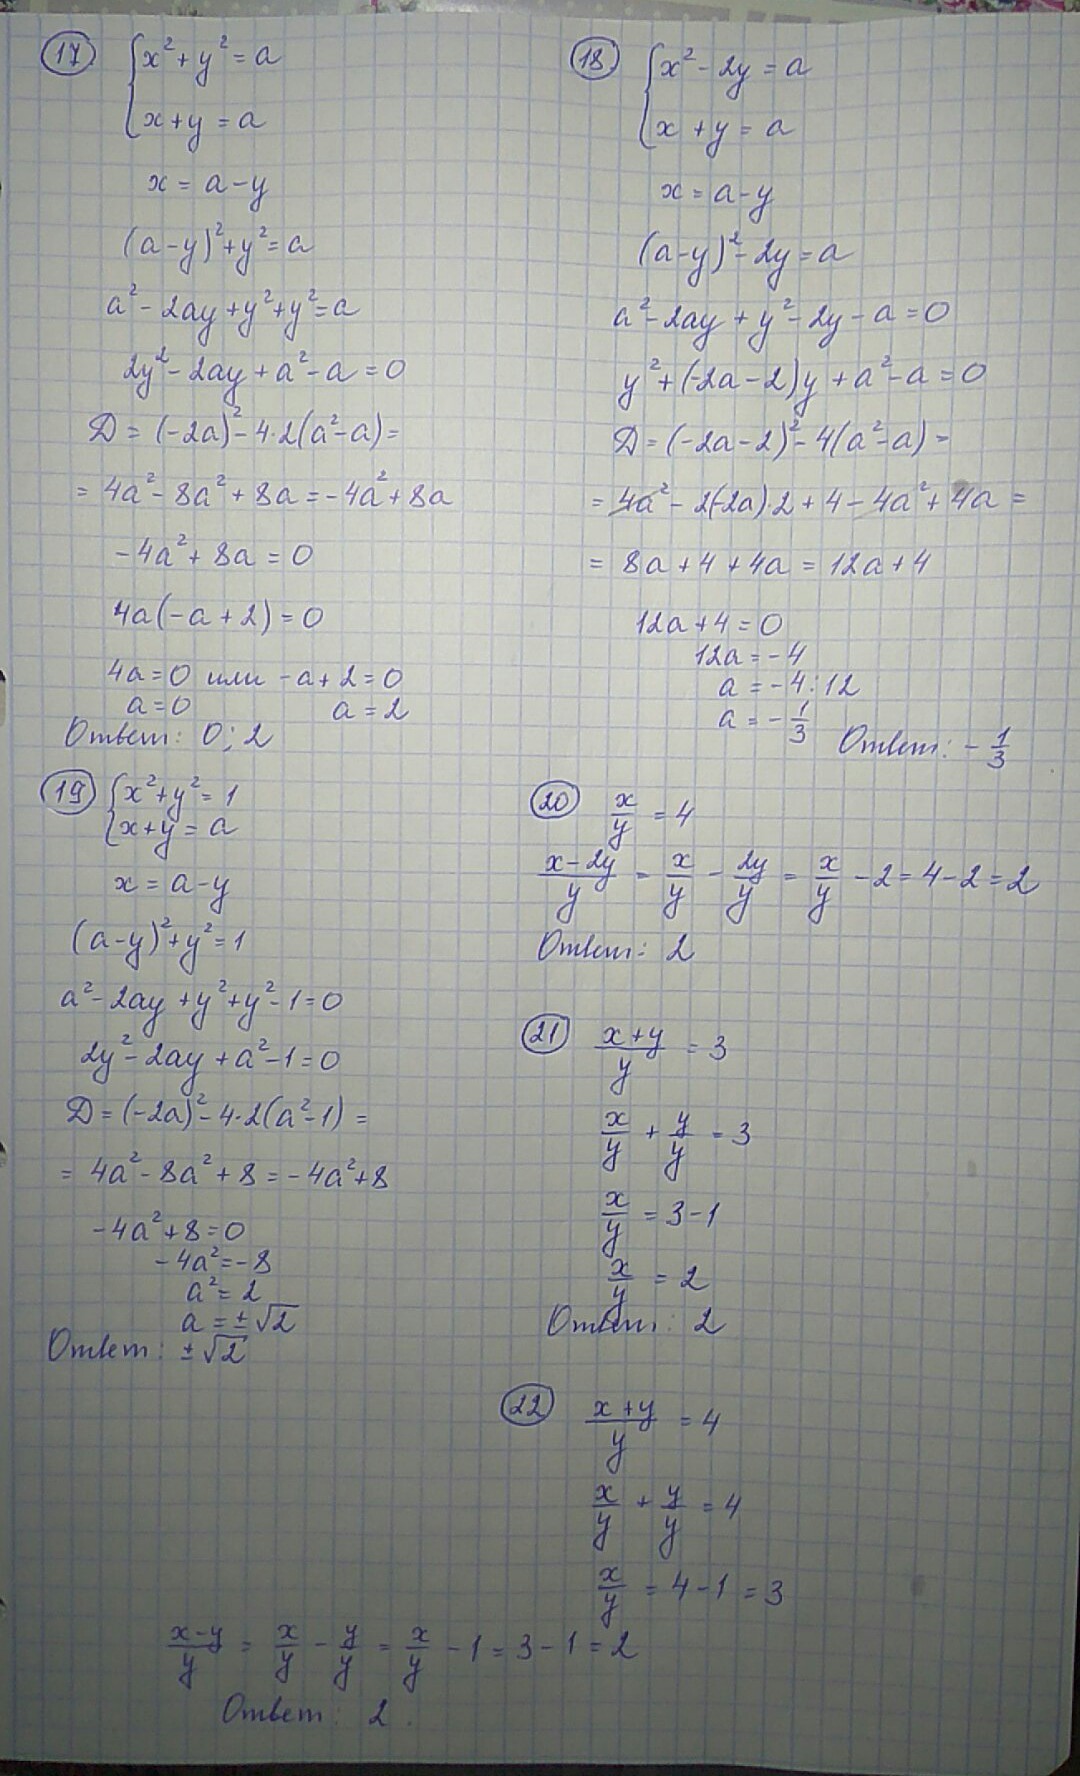 17 { x² + y² = a
x + y = a
x = a - y
(a - y)² + y² = a
a² - 2ay + y² + y² = a
2y² - 2ay + a² - a = 0
Д = (-2a)² - 4·2(a² - a) =
= 4a² - 8a² + 8a = -4a² + 8a
-4a² + 8a = 0
4a(-a + 2) = 0
4a = 0 или -a + 2 = 0
a = 0 a = 2
Ответ: 0; 2
18 { x² - 2y = a
x + y = a
x = a - y
(a - y)² - 2y = a
a² - 2ay + y² - 2y - a = 0
y² + (-2a - 2)y + a² - a = 0
Д = (-2a - 2)² - 4(a² - a) =
= 4a² - 2(-2a)·2 + 4 - 4a² + 4a =
= 8a + 4 + 4a = 12a + 4
12a + 4 = 0
12a = -4
a = -4 : 12
a = -1/3
Ответ: -1/3
19 { x² + y² = 1
x + y = a
x = a - y
(a - y)² + y² = 1
a² - 2ay + y² + y² - 1 = 0
2y² - 2ay + a² - 1 = 0
Д = (-2a)² - 4·2(a² - 1) =
= 4a² - 8a² + 8 = -4a² + 8
-4a² + 8 = 0
-4a² = -8
a² = 2
a = ±√2
Ответ: ±√2
20 x/y = 4
(x - 2y)/y = x/y - 2y/y = x/y - 2 = 4 - 2 = 2
Ответ: 2
21 (x + y)/y = 3
x/y + y/y = 3
x/y = 3 - 1
x/y = 2
Ответ: 2
22 (x + y)/y = 4
x/y + y/y = 4
x/y = 4 - 1 = 3
(x - y)/y = x/y - y/y = x/y - 1 = 3 - 1 = 2
Ответ: 2.